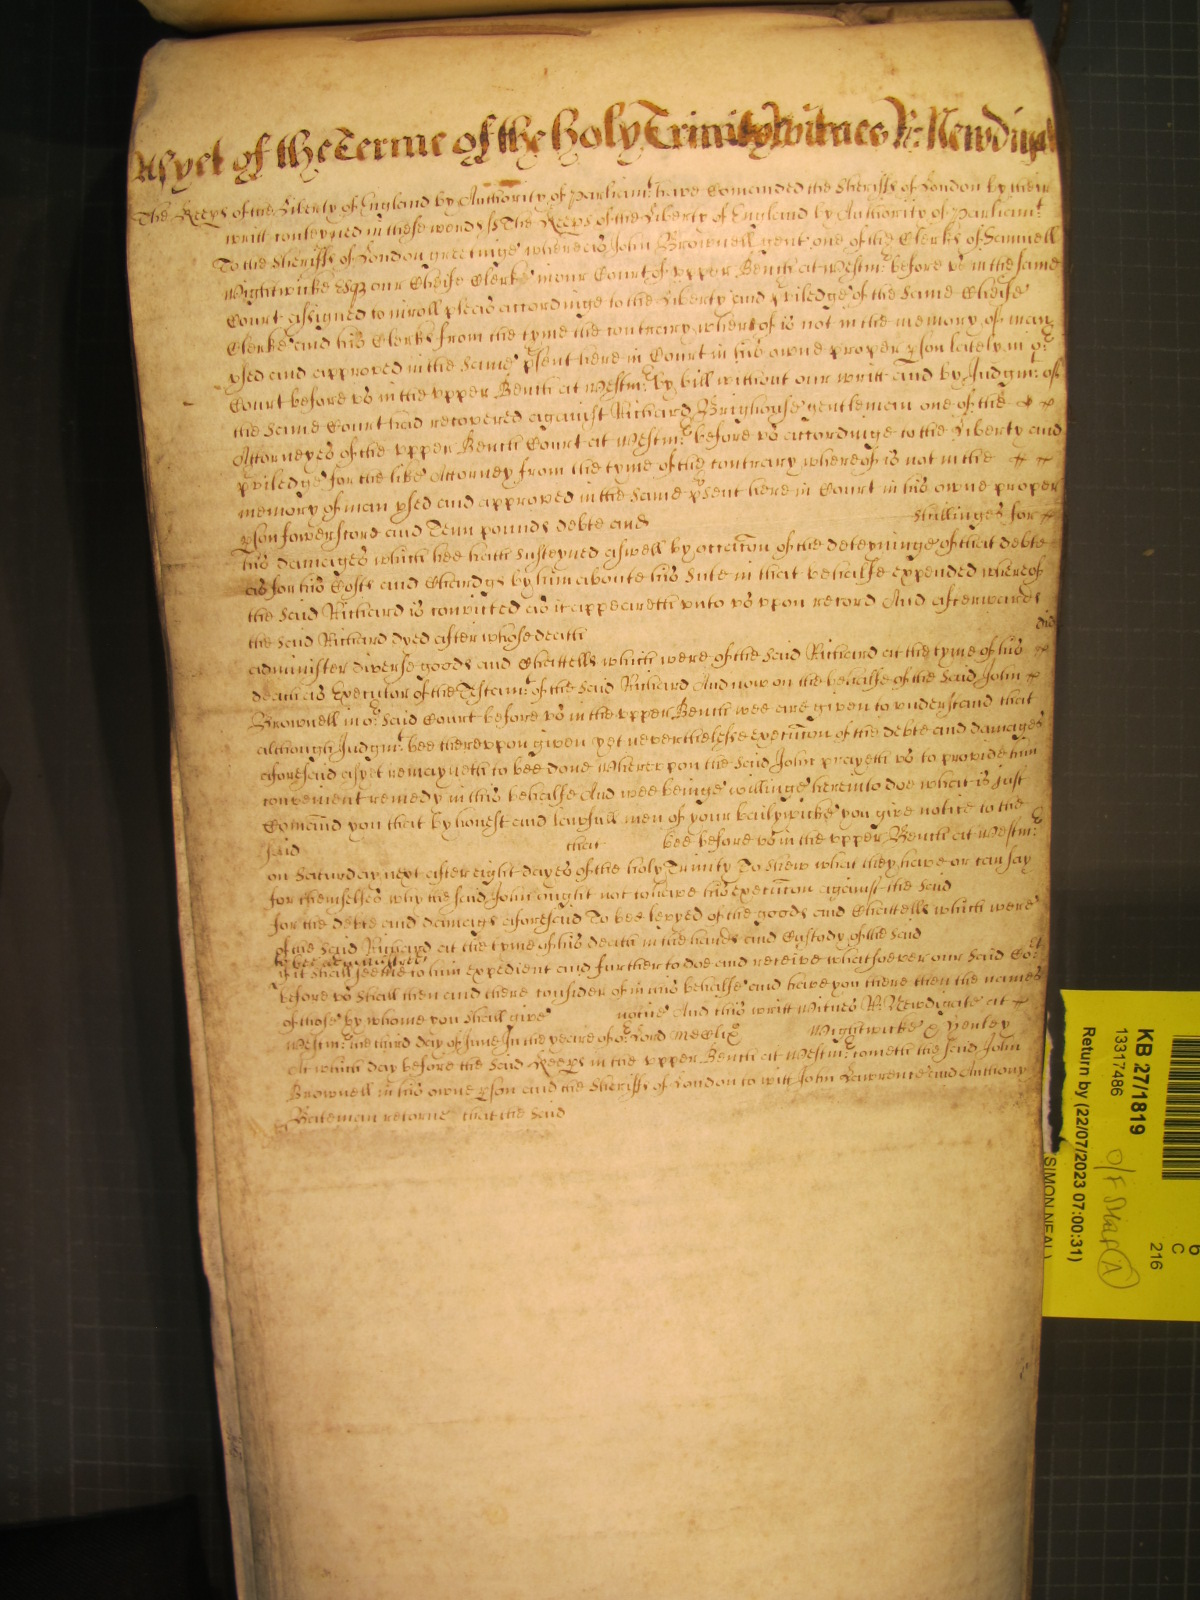 As yet of the Terme of the holy Trinity Witnes R: Newdigat
The Keeps of the Liberty of England by Authority of Parliamt: have Comanded the Sheriffs of London by their
writt conteyned in these words ss The Keeps of the Liberty of England by Authority of Parliamt:
To the Sheriffs of London greetinge whereas John Brownell gent one of the Clerks of Samuell
Wightwicke Esqr our Cheife Clerke in our Court of vpper Bench at Westmr: before vs in the same
Court assigned to inroll pleas accordinge to the Liberty and priledge of the same Cheife
Clerke and his Clerks from the tyme the contrary whereof is not in the memory of man
vsed and approved in the same psent here in Court in his owne proper pson lately in or:
Court before vs in the vpper Bench at Westmr: by bill without our writt and by Judgmt: of
the same Court had recovered against Richard Brighouse gentleman one of the
Attorneyes of the vpper Bench Court at Westmr: before vs accordinge to the Liberty and
priledge for the like Attorney from the tyme of the contrary whereof is not in the
memory of man vsed and approved in the same psent here in Court in his owne proper
pson fowerscore and Tenn pounds debte and shillinges for
his damages which hee hath susteyned aswell by occacon of the deteyninge of that debte
as for his Costs and Chardgs by him aboute his sute in that behalfe expended whereof
the said Richard is convicted as it appeareth vnto vs vpon record And afterwards
the said Richard dyed after whose death did
administer diverse goods and Chattells which were of the said Richard at the tyme of his
death as Executor of the Testamt: of the said Richard And now on the behalfe of the said John
Brownell in or: said Court before vs in the vpper Bench wee are given to vnderstand that
although Judgmt: bee therevpon given yet neverthelesse execucon of the debte and damages
aforesaid as yet remayneth to bee done Wherevpon the said John prayeth vs to provide him
convenient remedy in this behalfe And wee beinge willinge herein to doe what is just
Comand you that by honest and lawfull men of your bailywicke you give notice to the
said that bee before vs in the vpper Bench at Westmr:
on Saturday next after eight dayes of the holy Trinity To shew what they have or can say
for themselves why the said John ought not to have his execucon against the said
for the debte and damags aforesaid To bee levyed of the goods and Chattells which were
of the said Richard at the tyme of his death in the hands and Custody of the said
to bee administred
if it shall seeme to him expedient and further to doe and receive whatsoever our said Cort
before vs shall then and there consider of in this behalfe and have you there then the names
of those by whome you shall give notice And this writt Witnes R: Newdigate at
Westmr: the third day of June In the yeare of or: Lord MDCLIX Wightwicke & Henley
At which day before the said Keeps in the vpper Bench at Westmr: cometh the said John
Brownell in his owne pson and the Sheriffs of London to witt John Lawrence and Anthony
Bateman retorne that the said
KB 27/1819
13317486
Return by (22/07/2023 07:00:31)
SIMON NEAL)
216
C
6